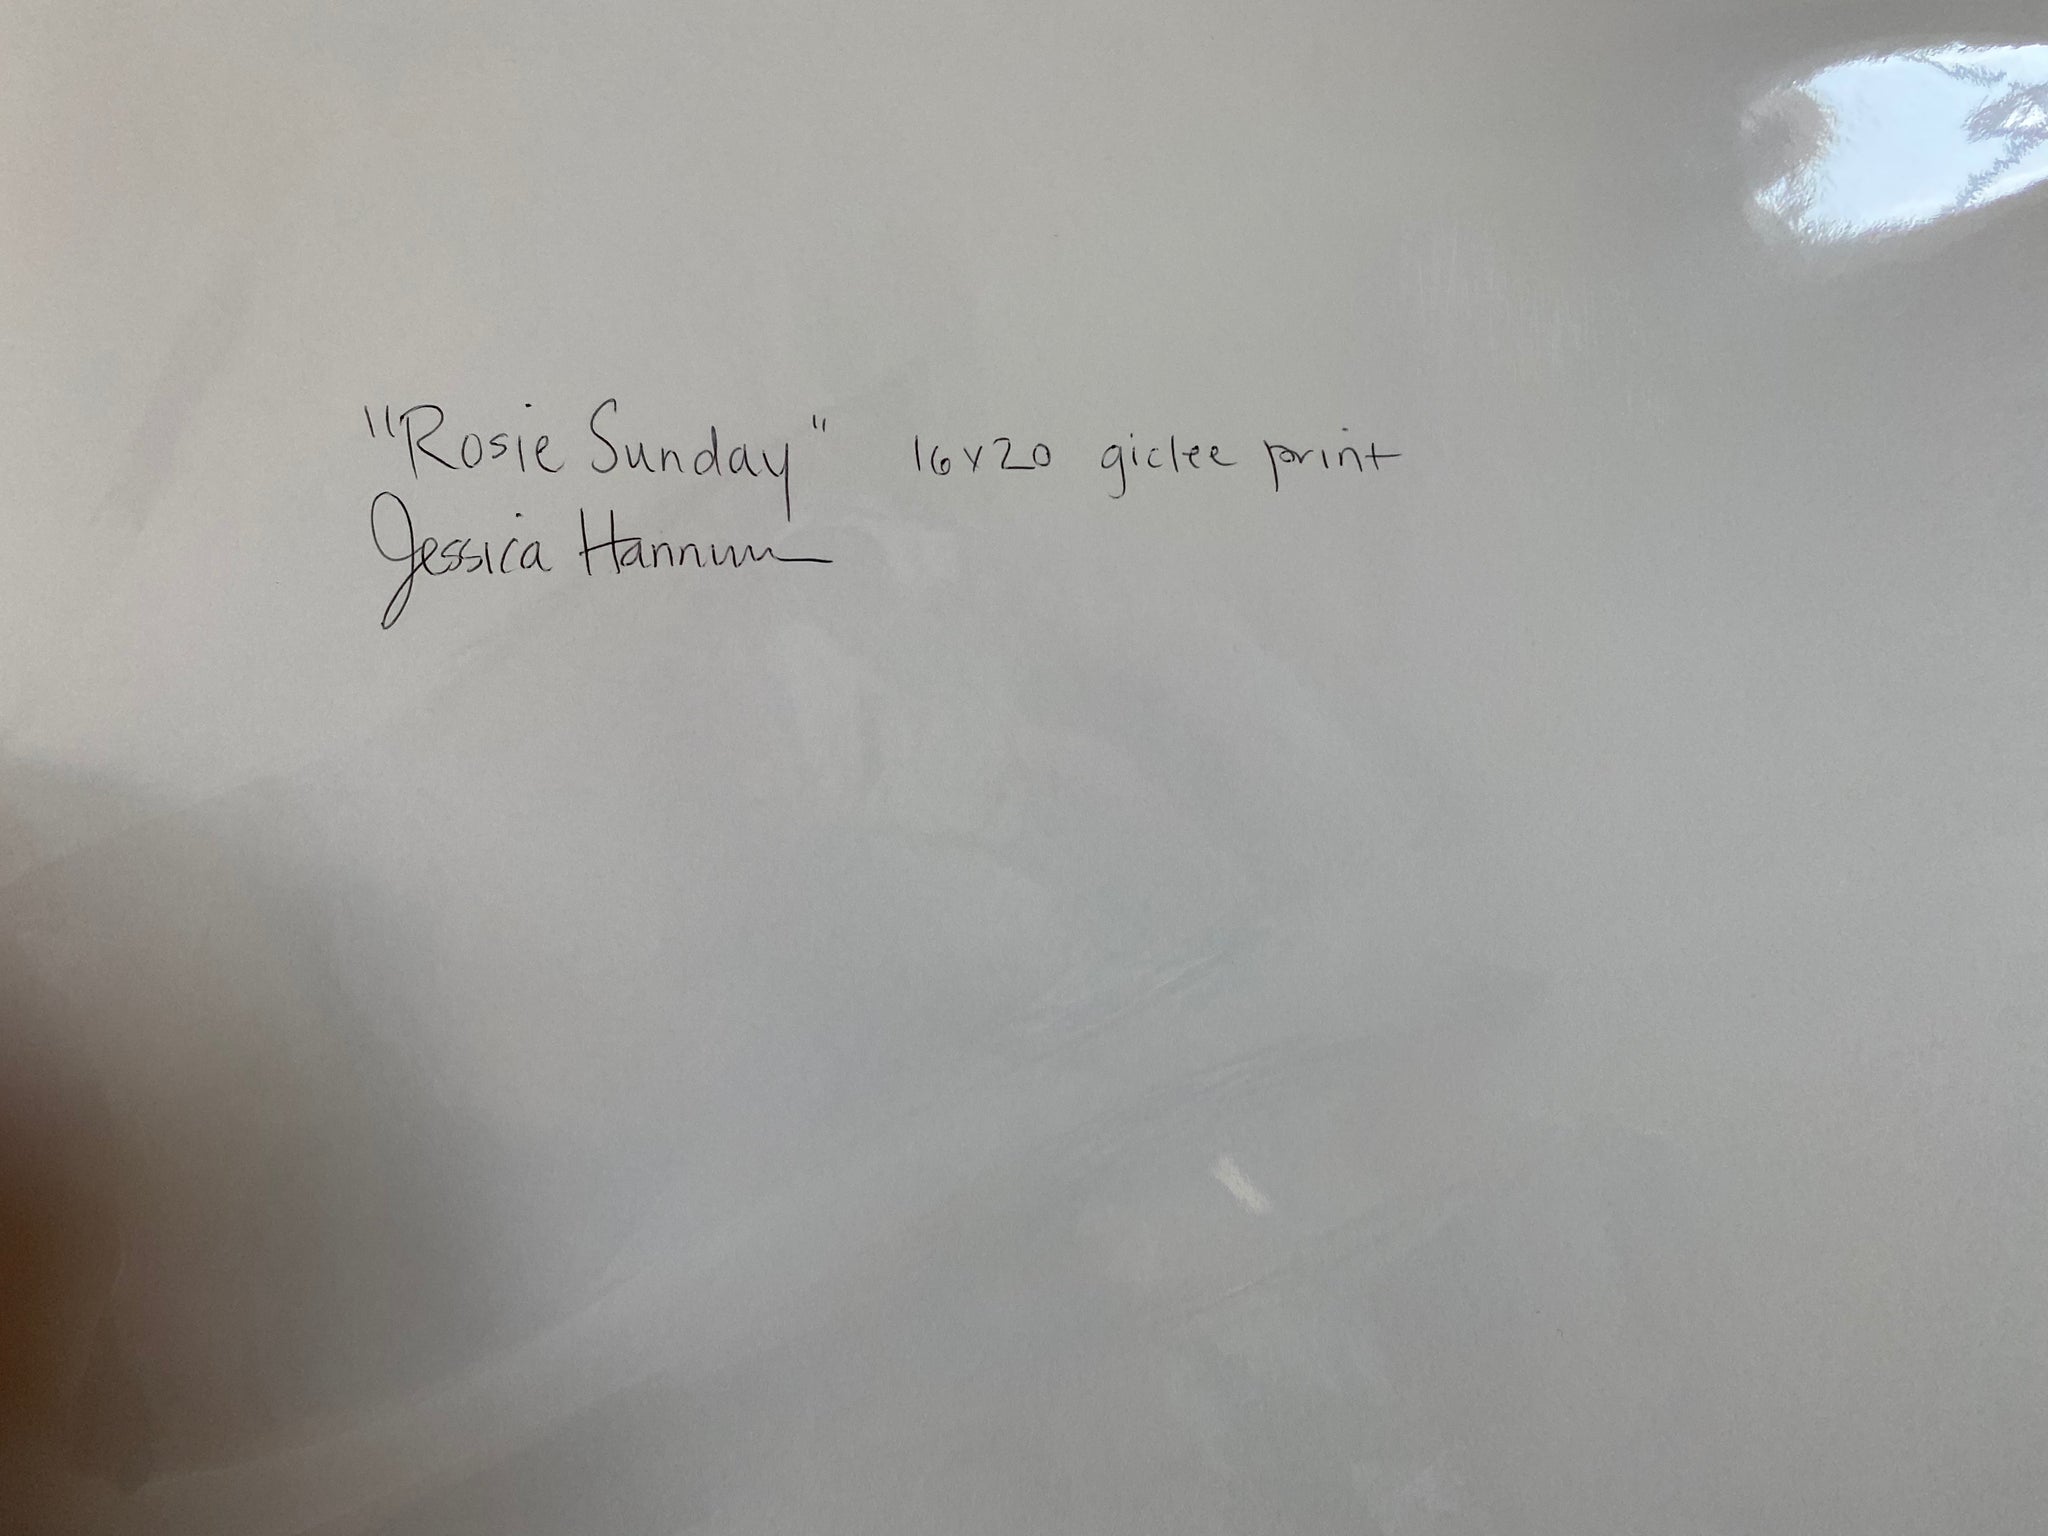 "Rosie Sunday" 16x20 giclee print
Jessica Hannum